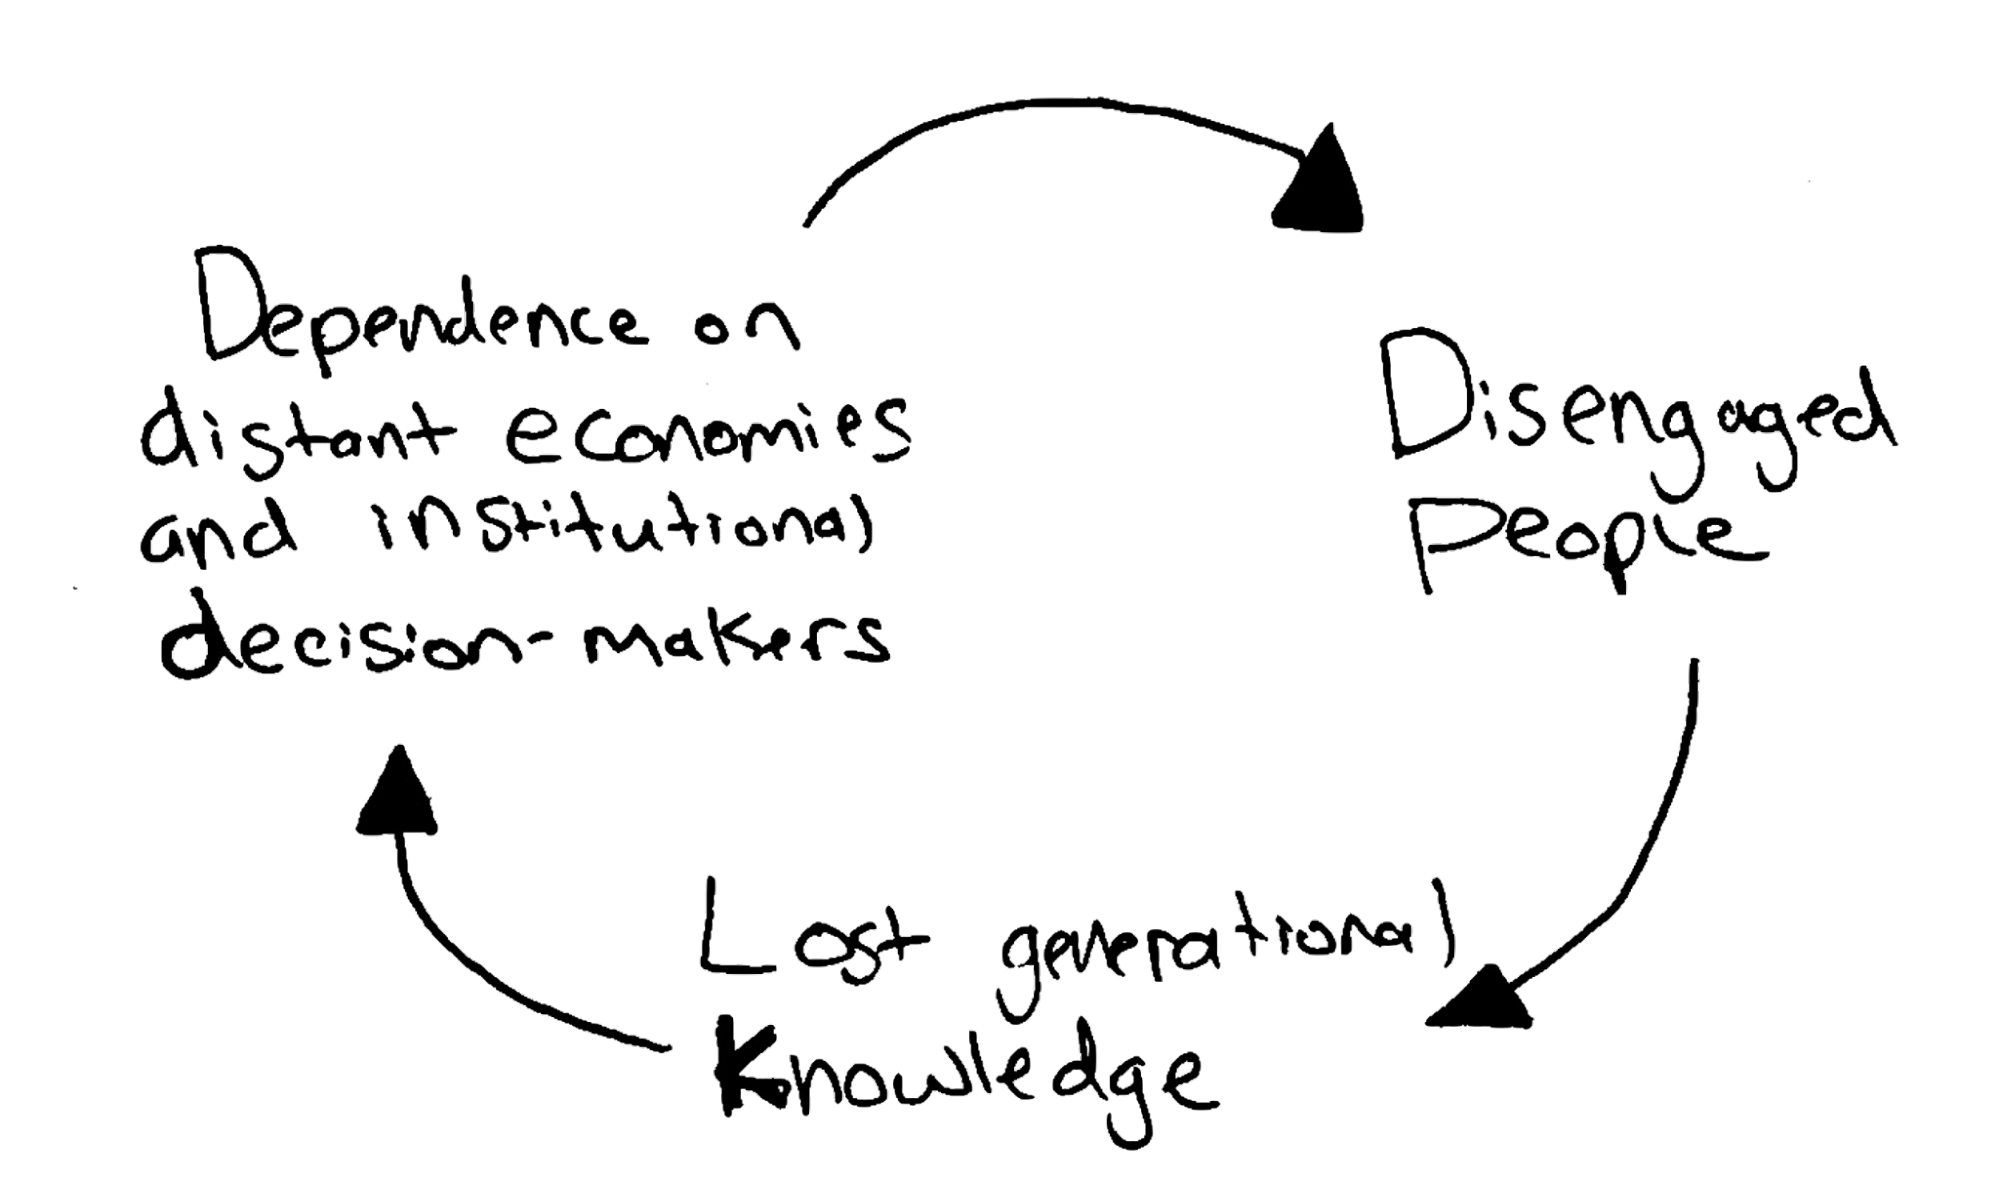 Dependence on
distant economies
and institutional
decision-makers
Disengaged
People
Lost generational
Knowledge